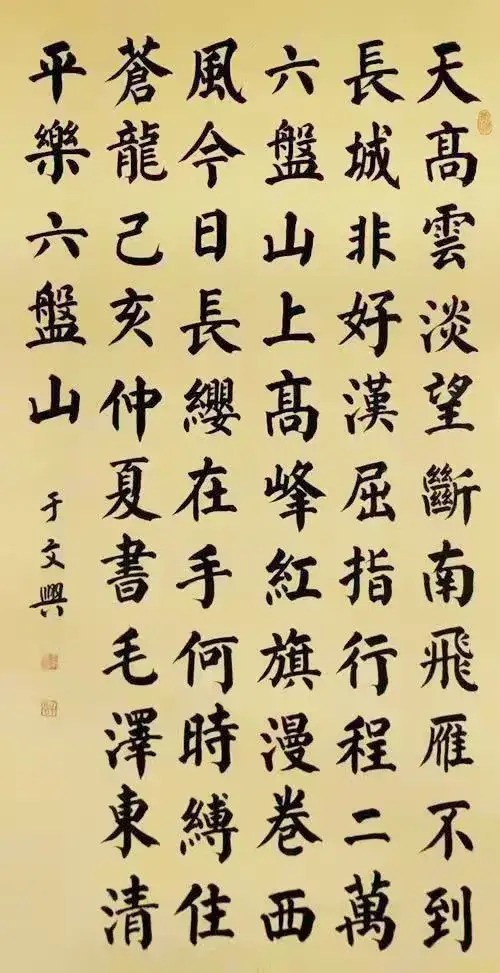 天高雲淡望斷南飛雁不到
長城非好漢屈指行程二萬
六盤山上高峰紅旗漫卷西
風今日長纓在手何時縛住
蒼龍己亥仲夏書毛澤東清
平樂六盤山
于文興